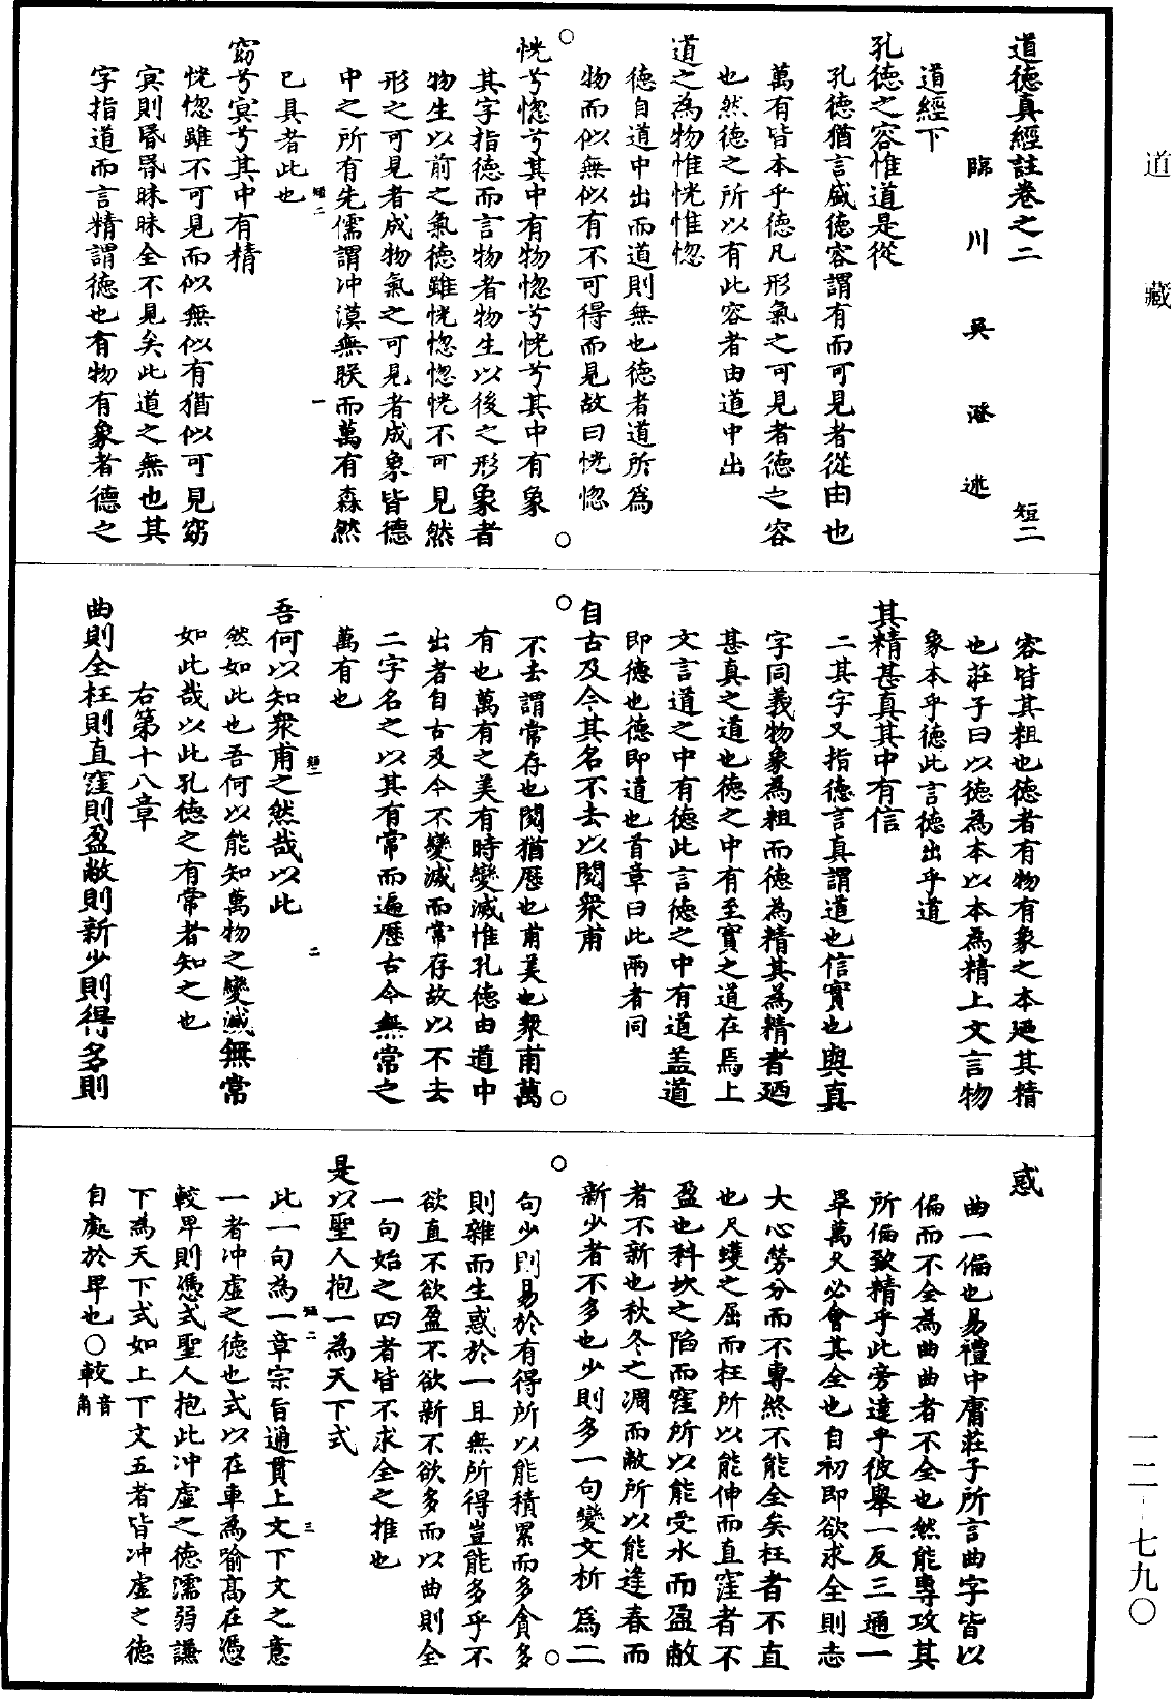 道藏
道德真經註卷之二 短二
臨川吳澄述
道經下
孔德之容惟道是從
孔德猶言盛德容謂有而可見者從由也
萬有皆本乎德凡形氣之可見者德之容
也然德之所以有此容者由道中出
道之為物惟恍惟惚
德自道中出而道則無也德者道所為
物而似無似有不可得而見故曰恍惚
恍兮惚兮其中有物惚兮恍兮其中有象
其字指德而言物者物生以後之形象者
物生以前之氣德雖恍惚惚恍不可見然
形之可見者成物氣之可見者成象皆德
中之所有先儒謂冲漠無朕而萬有森然
已具者此也
短二 一
窈兮冥兮其中有精
恍惚雖不可見而似無似有猶似可見窈
冥則昏昏昧昧全不見矣此道之無也其
字指道而言精謂德也有物有象者德之
容皆其粗也德者有物有象之本廼其精
也莊子曰以德為本以本為精上文言物
象本乎德此言德出乎道
其精甚真其中有信
二其字又指德言真謂道也信實也與真
字同義物象為粗而德為精其為精者廼
甚真之道也德之中有至實之道在焉上
文言道之中有德此言德之中有道蓋道
即德也德即道也首章曰此兩者同
自古及今其名不去以閱衆甫
不去謂常存也閱猶歷也甫美也衆甫萬
有也萬有之美有時變滅惟孔德由道中
出者自古及今不變滅而常存故以不去
二字名之以其有常而遍歷古今無常之
萬有也
短二 二
吾何以知衆甫之然哉以此
然如此也吾何以能知萬物之變滅無常
如此哉以此孔德之有常者知之也
右第十八章
曲則全枉則直窪則盈敝則新少則得多則
惑
曲一偏也易禮中庸莊子所言曲字皆以
偏而不全為曲曲者不全也然能專攻其
所偏致精乎此旁達乎彼舉一反三通一
畢萬久必會其全也自初即欲求全則志
大心勞分而不專終不能全矣枉者不直
也尺蠖之屈而枉所以能伸而直窪者不
盈也科坎之陷而窪所以能受水而盈敝
者不新也秋冬之凋而敝所以能逢春而
新少者不多也少則多一句變文析為二
句少則易於有得所以能積累而多貪多
則雜而生惑於一且無所得豈能多乎不
欲直不欲盈不欲新不欲多而以曲則全
一句始之四者皆不求全之推也
是以聖人抱一為天下式
短二 三
此一句為一章宗旨通貫上文下文之意
一者冲虛之德也式以在車為喻高在憑
較卑則憑式聖人抱此冲虛之德濡弱謙
下為天下式如上下文五者皆冲虛之德
自處於卑也○較音角
一二─七九〇